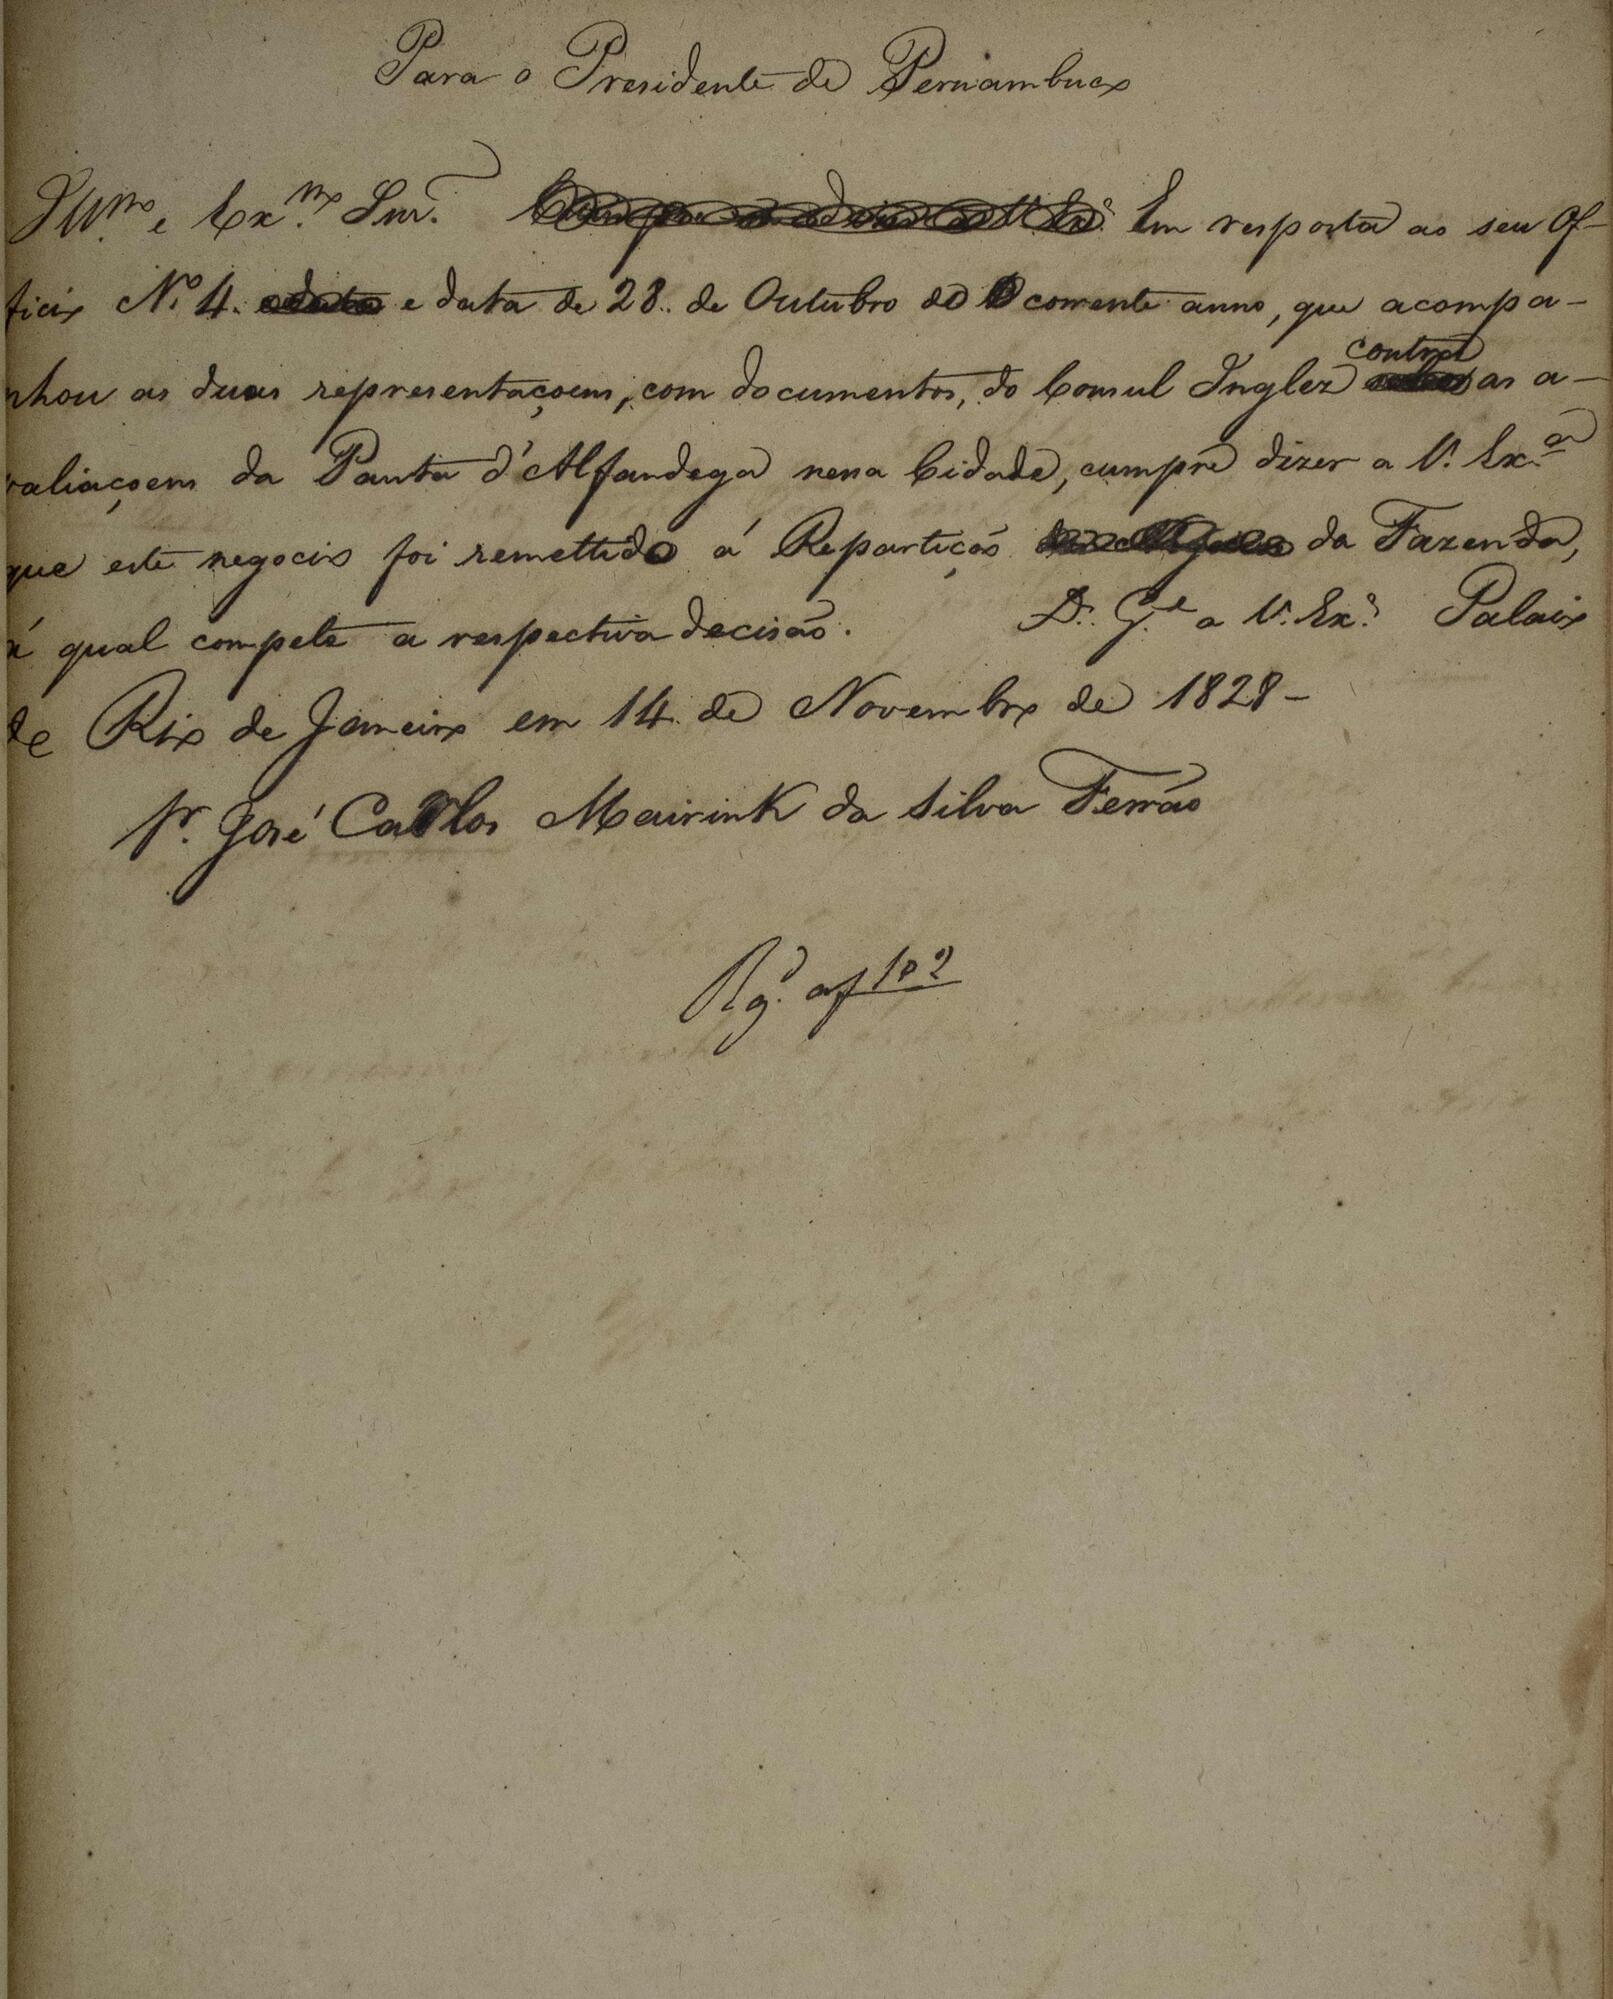 Para o Presidente de Pernambuco
Ill.mo e Ex.mo Snr. Em resposta ao seu Of-
ficio N.o 4. e data de 28.. de Outubro do corrente anno, que acompa-
nhou as duas representaçoens, com documentos, do Consul Inglez contra as a-
valiaçoens da Pauta d'Alfandega nessa Cidade, cumpre dizer a V. Ex.a
que este negocio foi remettido á Repartição da Fazenda,
á qual compete a respectiva decisão. D.s G.e a V. Ex.a Palacio
de Rio de Janeiro em 14 de Novembro de 1828-
Sr. José Carlos Mairink da Silva Ferrão
Rg.do af 102